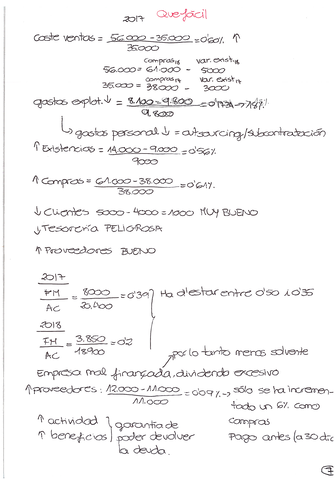 2017 Que fácil
coste ventas = 56.000 - 35.000 = 0'60% ↑
35.000
compras18 var. exist.18
56.000 = 61.000 - 5000
compras17 var. exist.17
35.000 = 38.000 - 3000
gastos explot. ↓ = 8.100 - 9.800
9.800
gastos personal ↓ = outsourcing/subcontratación
↑ Existencias = 14.000 - 9.000 = 0'56%
9000
↑ Compras = 61.000 - 38.000 = 0'61%
38.000
↓ Clientes 5000 - 4000 = 1000 MUY BUENO
↓ Tesorería PELIGROSA
↑ Proveedores BUENO
2017
FM = 8000 = 0'39
AC 20.400
Ha d'estar entre 0'50 i 0'35
2018
FM = 3.850 = 0'2
AC 18900
por lo tanto menos solvente
Empresa mal financiada, dividendo excesivo
↑ proveedores: 12.000 - 11.000 = 0'09% → sólo se ha incremen-
11.000 tado un 6% como
↑ actividad garantía de compras
↑ beneficios poder devolver Pago antes (a 30 d
la deuda.
7